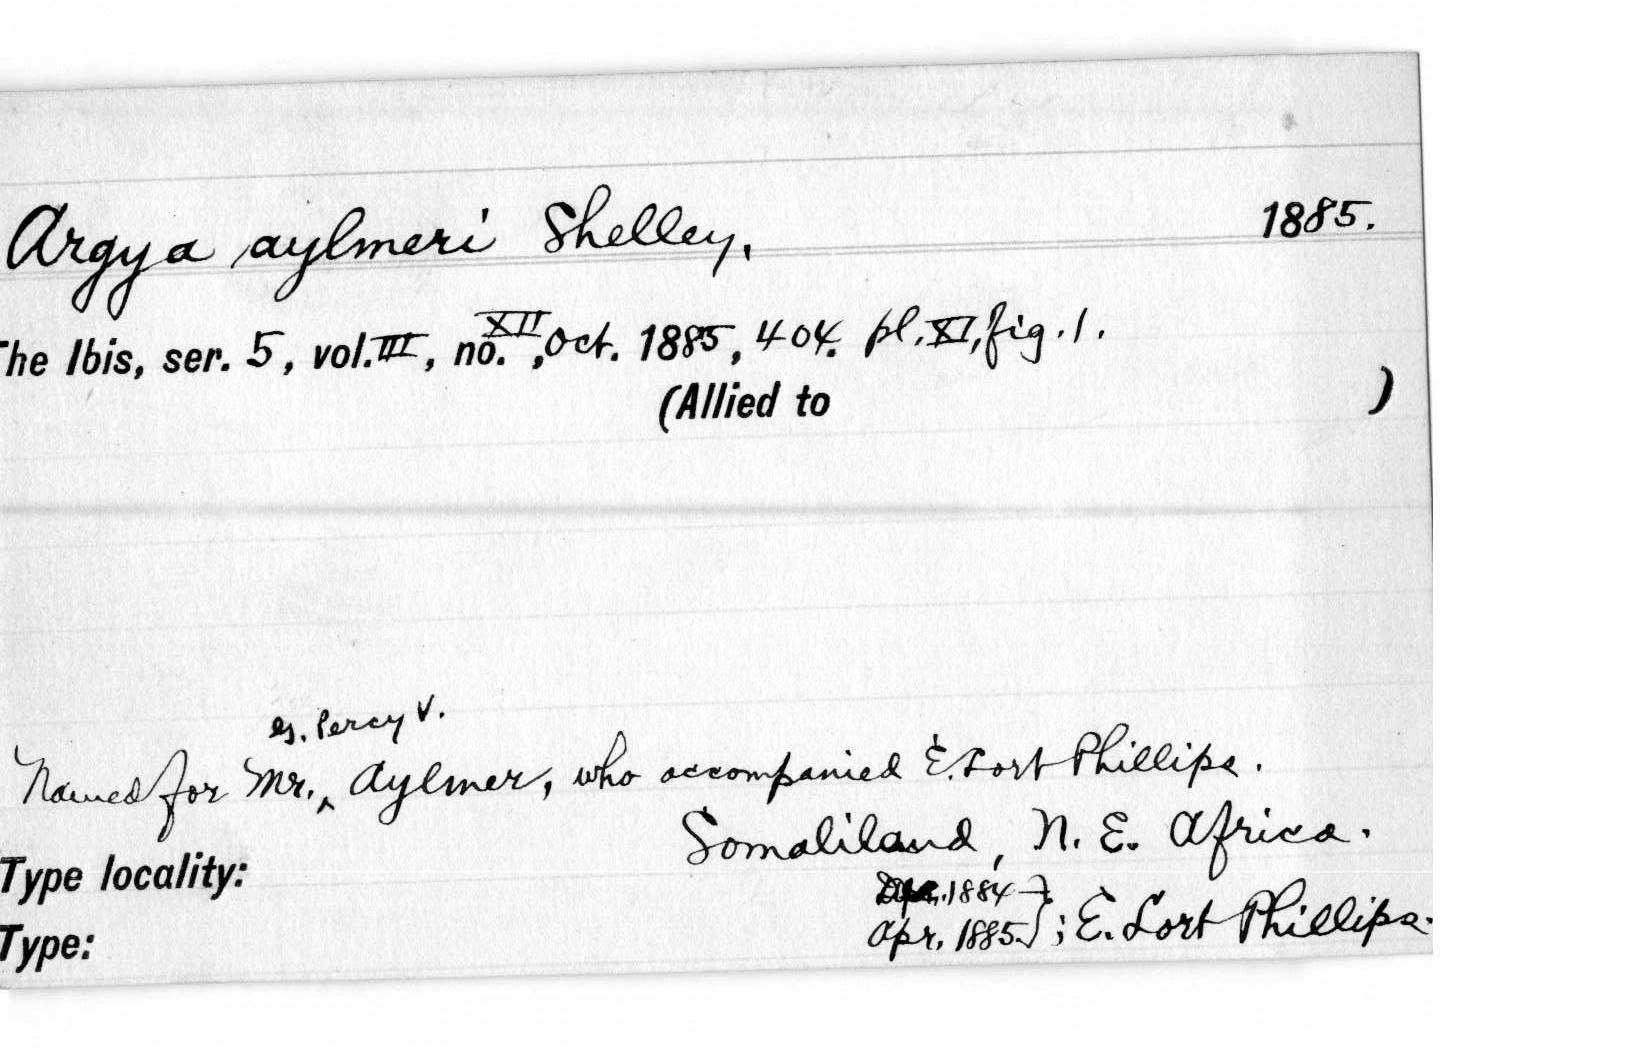 Argya aylmeri Shelley, 1885.
he Ibis, ser. 5, vol. III, no. XII, Oct. 1885, 404. pl. XI, fig. 1.
(Allied to )
G. Percy V.
Named for Mr. ^ Aylmer, who accompanied E. Lort Phillips.
Somaliland, N. E. Africa.
Type locality:
1884 -
Apr. 1885 ; E. Lort Phillips.
Type: